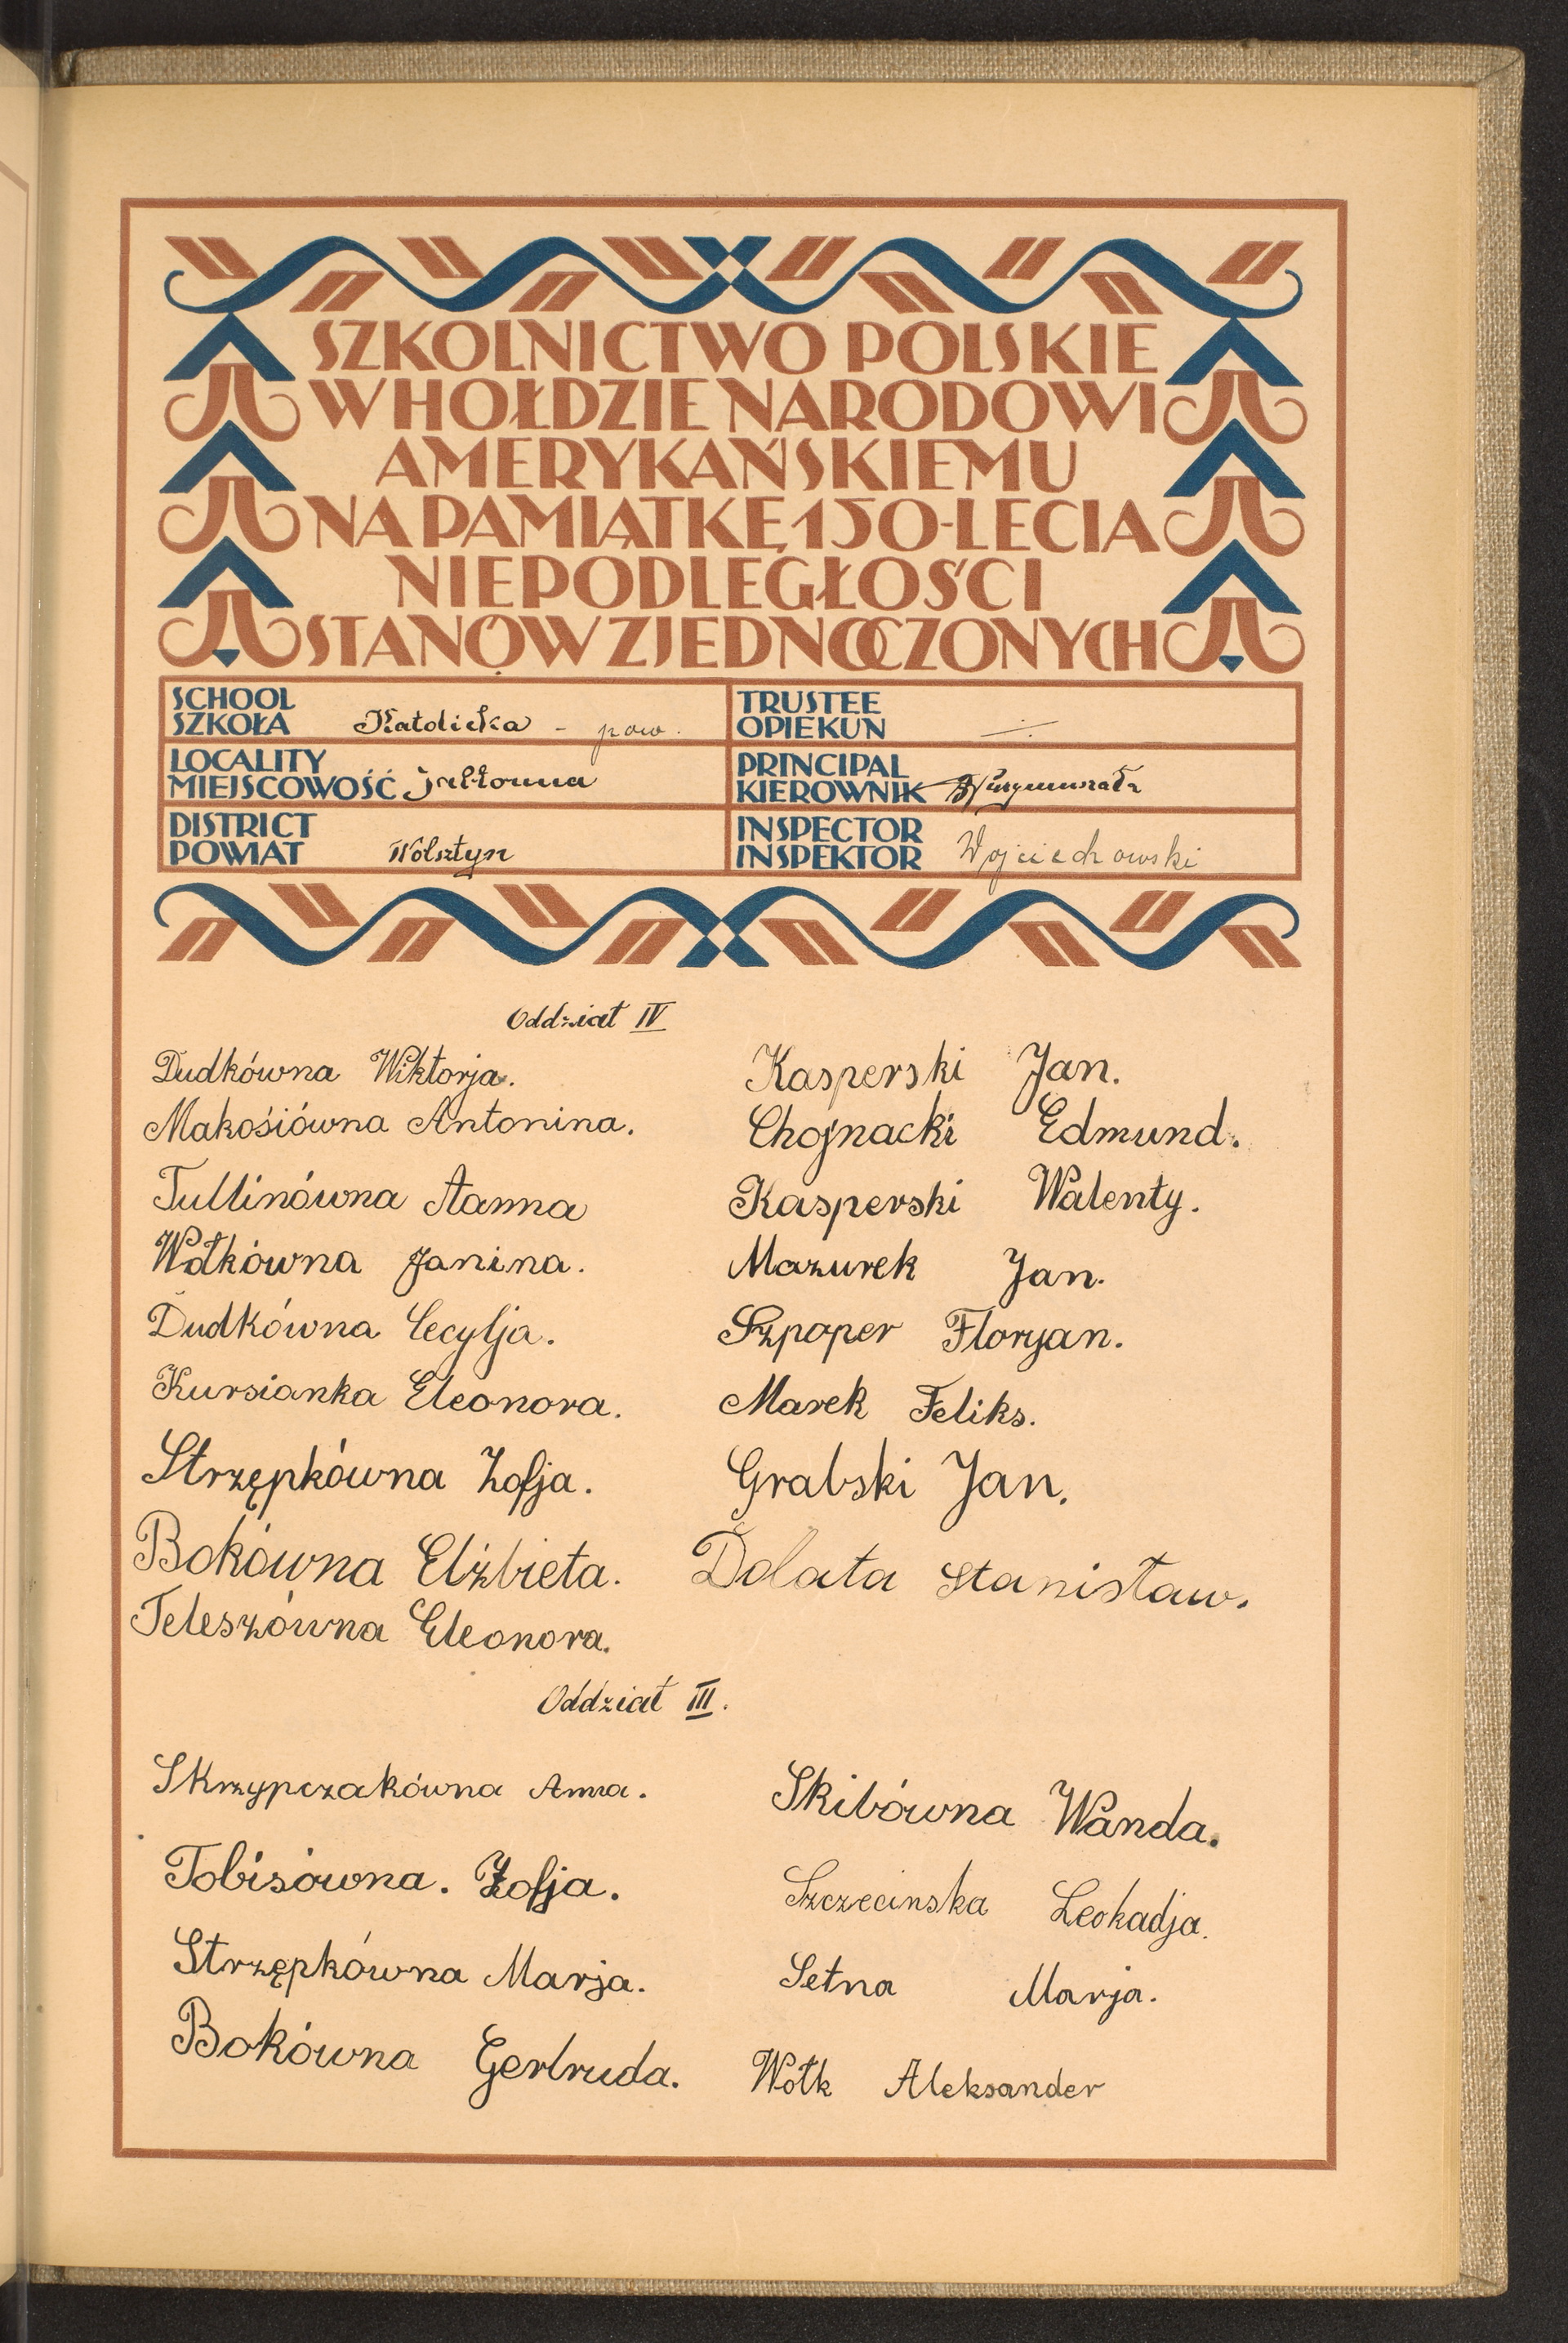 SZKOLNICTWO POLSKIE
W HOŁDZIE NARODOWI
AMERYKAŃSKIEMU
NA PAMIĄTKĘ 150-LECIA
NIEPODLEGŁOŚCI
STANÓW ZJEDNOCZONYCH
SCHOOL
SZKOŁA Katolicka - pow.
LOCALITY
MIEJSCOWOŚĆ Jabłonna
DISTRICT
POWIAT Wolsztyn
TRUSTEE
OPIEKUN
PRINCIPAL
KIEROWNIK
INSPECTOR
INSPEKTOR Wojciechowski
Oddział IV
Dudkówna Wiktorja.
Makośiówna Antonina.
Tullinówna Hanna
Wołkówna Janina.
Dudkówna Cecylja.
Kursianka Eleonora.
Strzępkówna Zofja.
Bokówna Elżbieta.
Teleszówna Eleonora.
Kasperski Jan.
Chojnacki Edmund.
Kasperski Walenty.
Mazurek Jan.
Szpoper Floryan.
Marek Feliks.
Grabski Jan.
Dolata Stanisław.
Oddział III.
Skrzypczakówna Anna.
Tobisówna. Zofja.
Strzępkówna Marja.
Bokówna Gertruda.
Skibówna Wanda.
Szczecinska Leokadja.
Setna Marja.
Wołk Aleksander